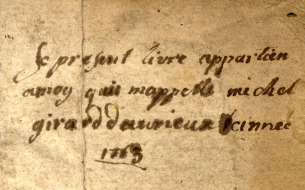 Le present livre appartien
amoy qui mappelle michel
girard daurieux lannee
1763